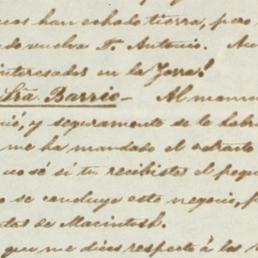 nos han echado tierra, pero
do vuelva D. Antonio.
interesados en la Zorra!
Sra. Barrie - Al mamá
ió, y seguramente se lo habrá
me ha mandado el adjunto
no sé si tu recibistes el peque
se concluya este negocio, p
tas de Macintosh.
que me dices respecto á las